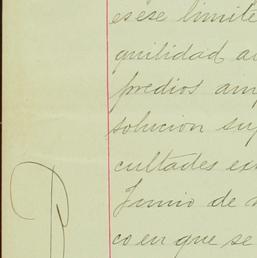 es ese limite
quilidad
predios
solucion
cultades
Junio de
co en que se